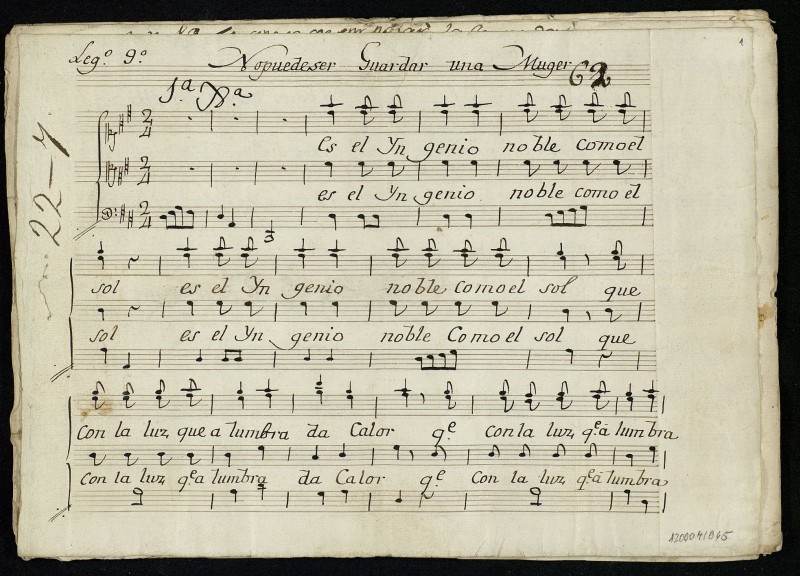 Leg.º 9.º Nopuedeser Guardar una Muger 62
1
1.ª X.ª
2/4 Es el Yn genio noble Comoel
2/4 es el Yn genio noble como el
2/4
22-7
sol es el Yn genio noble Como el sol que
sol es el Yn genio noble Como el sol que
Con la luz que a lumbra da Calor q.e Con la luz q.e á lumbra
Con la luz q.e a lumbra da Calor q.e Con la luz q.e á lumbra
1200041945